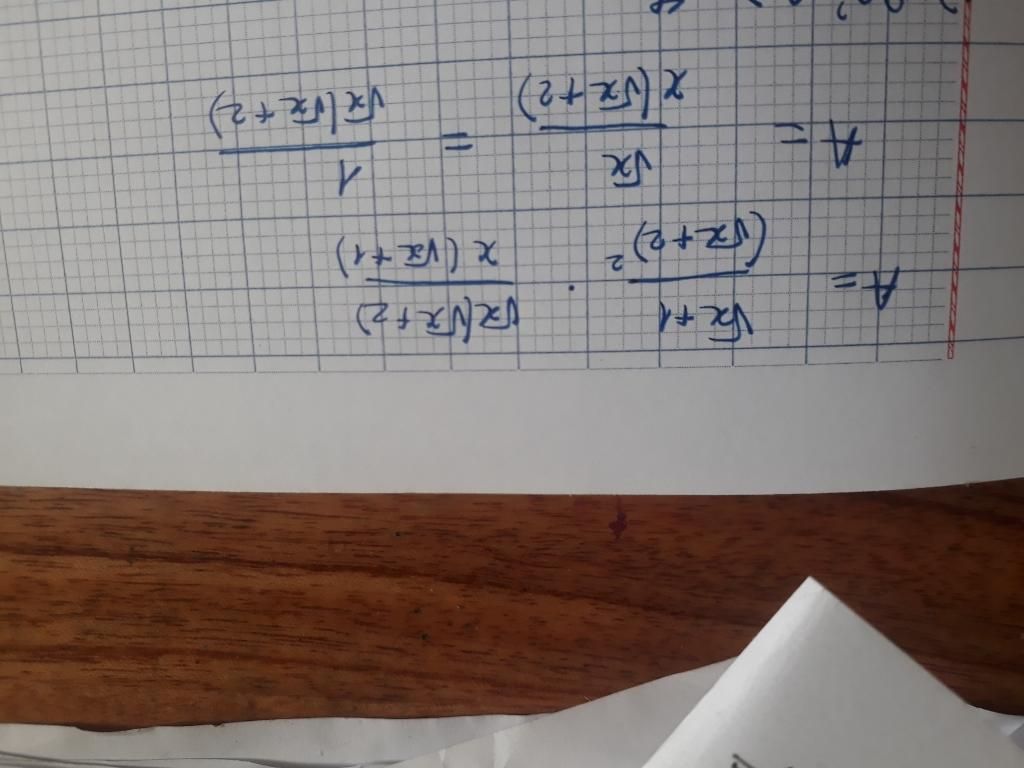 A = (√x+1)/(√x+2)² . (√x(√x+2))/(x(√x+1))
A = √x/(x(√x+2)) = 1/(√x(√x+2))